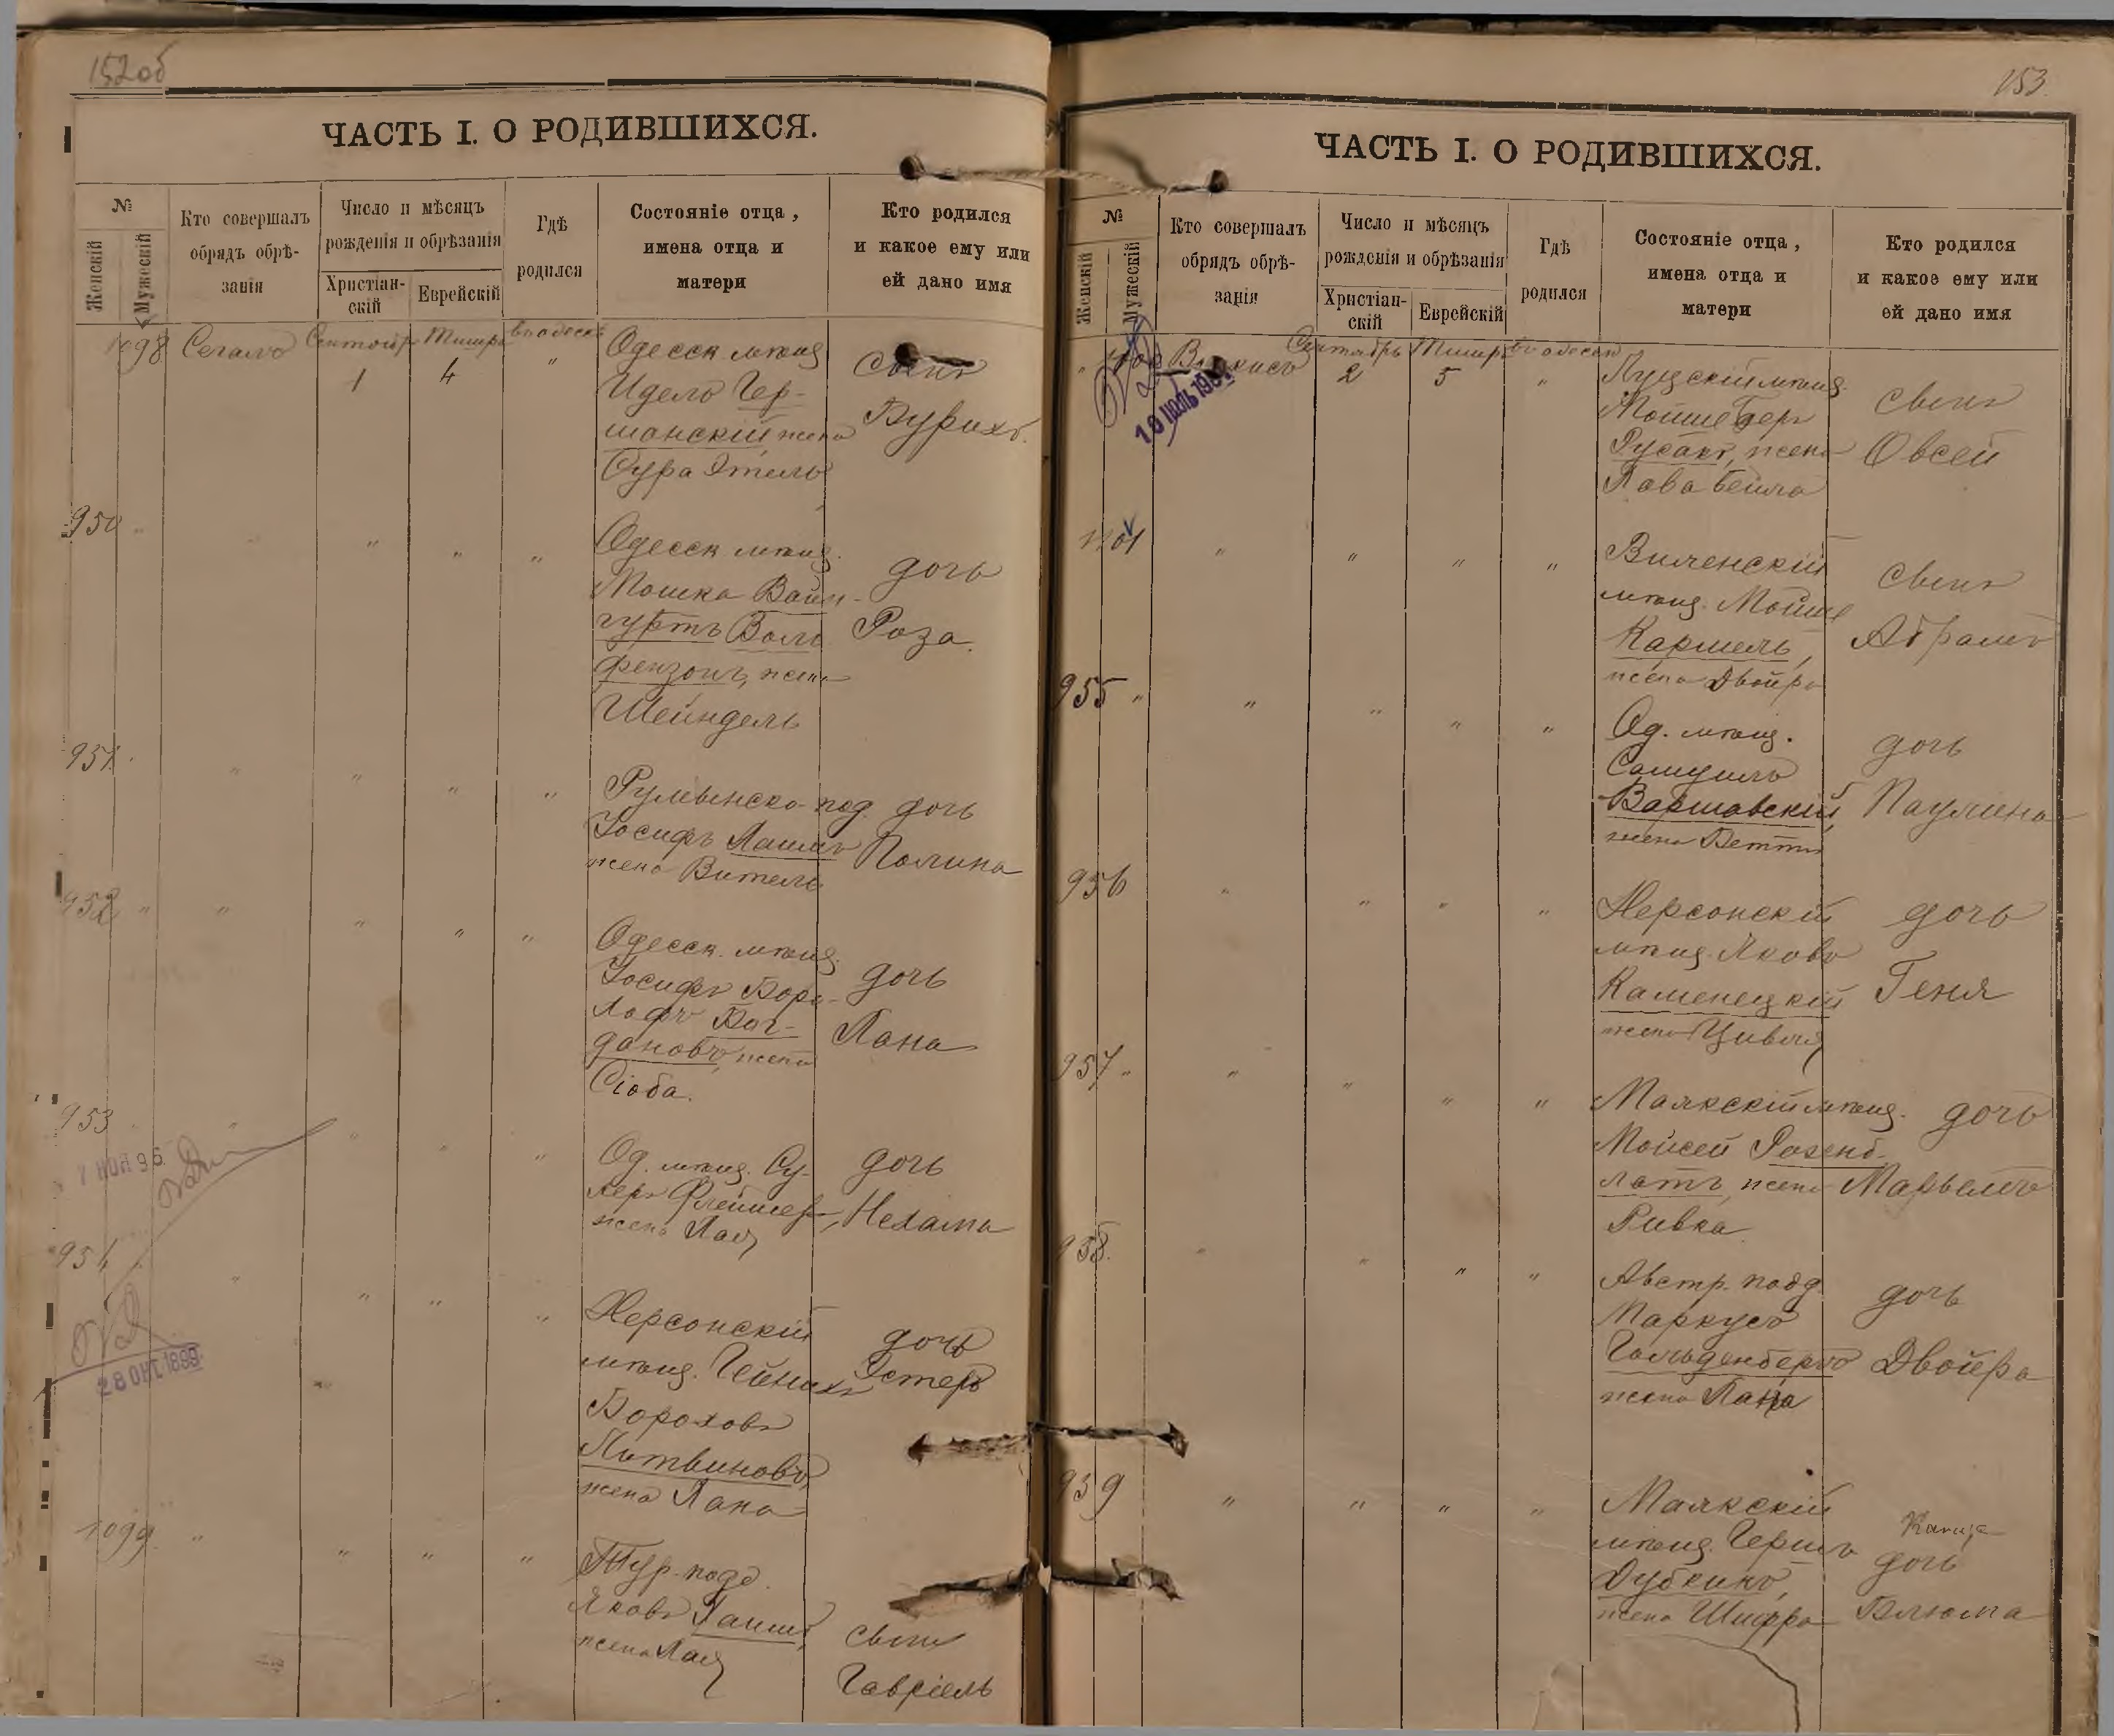 152об
ЧАСТЬ I. О РОДИВШИХСЯ.
№
Женскій
Мужескій
Кто совершалъ
обрядъ обрѣ-
занія
Число и мѣсяцъ
рожденія и обрѣзанія
Христіан-
скій
Еврейскій
Гдѣ
родился
Состояніе отца,
имена отца и
матери
Кто родился
и какое ему или
ей дано имя
1098 Сегалъ Сентябрь Тишри въ Одессѣ
1 4 "
Одесск. мѣщ.
Идель Гер-
шанскій, жена
Сура Этель
Сынъ
Бурихъ.
950 " " " "
Одесск. мѣщ.
Мошка Вайн-
гуртъ Воль
фензонъ, жена
Шейндель
дочь
Роза.
951 " " " "
Румынско-под.
Іосифъ
жена Витель
дочь
Полина
952 " " " " "
Одесск. мѣщ.
Іосифъ
Бог-
дановъ, жена
Сіоба.
дочь
Хана
953 " " " "
Од. мѣщ. Су-
херъ Флейшеръ,
жена Хая
дочь
Нехама
7 НОЯ 96
954 " " " "
Херсонскій
мѣщ. Гейнихъ
Бороховъ
Литвиновъ,
жена Хана
дочь
Эстеръ
28 ОКТ. 1899
1099 " " " "
Тур. подд.
Яковъ
жена Хая
сынъ
Гавріель
153
ЧАСТЬ I. О РОДИВШИХСЯ.
№
Женскій
Мужескій
Кто совершалъ
обрядъ обрѣ-
занія
Число и мѣсяцъ
рожденія и обрѣзанія
Христіан-
скій
Еврейскій
Гдѣ
родился
Состояніе отца,
имена отца и
матери
Кто родился
и какое ему или
ей дано имя
" 1100 Сентябрь Тишри въ Одессѣ
2 5 "
Луцскій мѣщ.
Мойше Беръ
Русакъ, жена
Хава Бейла
сынъ
Овсей
1101 " " " "
Виленскій
мѣщ. Мойше
Кармель,
жена Двойра
сынъ
Абрамъ
955 " " " " "
Од. мѣщ.
Самуилъ
Варшавскій,
жена Бетти
дочь
Паулина
956 " " " "
Херсонскій
мѣщ. Яковъ
Каменецкій
жена Цивля
дочь
Геня
957 " " " " "
Маякскій мѣщ.
Мойсей Розенб-
латъ, жена
Ривка
дочь
Марьемъ
958 " " " "
Австр. подд.
Маркусъ
Гольденбергъ
жена Хана
дочь
Двойра
959 " " " "
Маякскій
мѣщ. Гершъ
Дубкинъ,
жена Шифра
дочь
Блюма